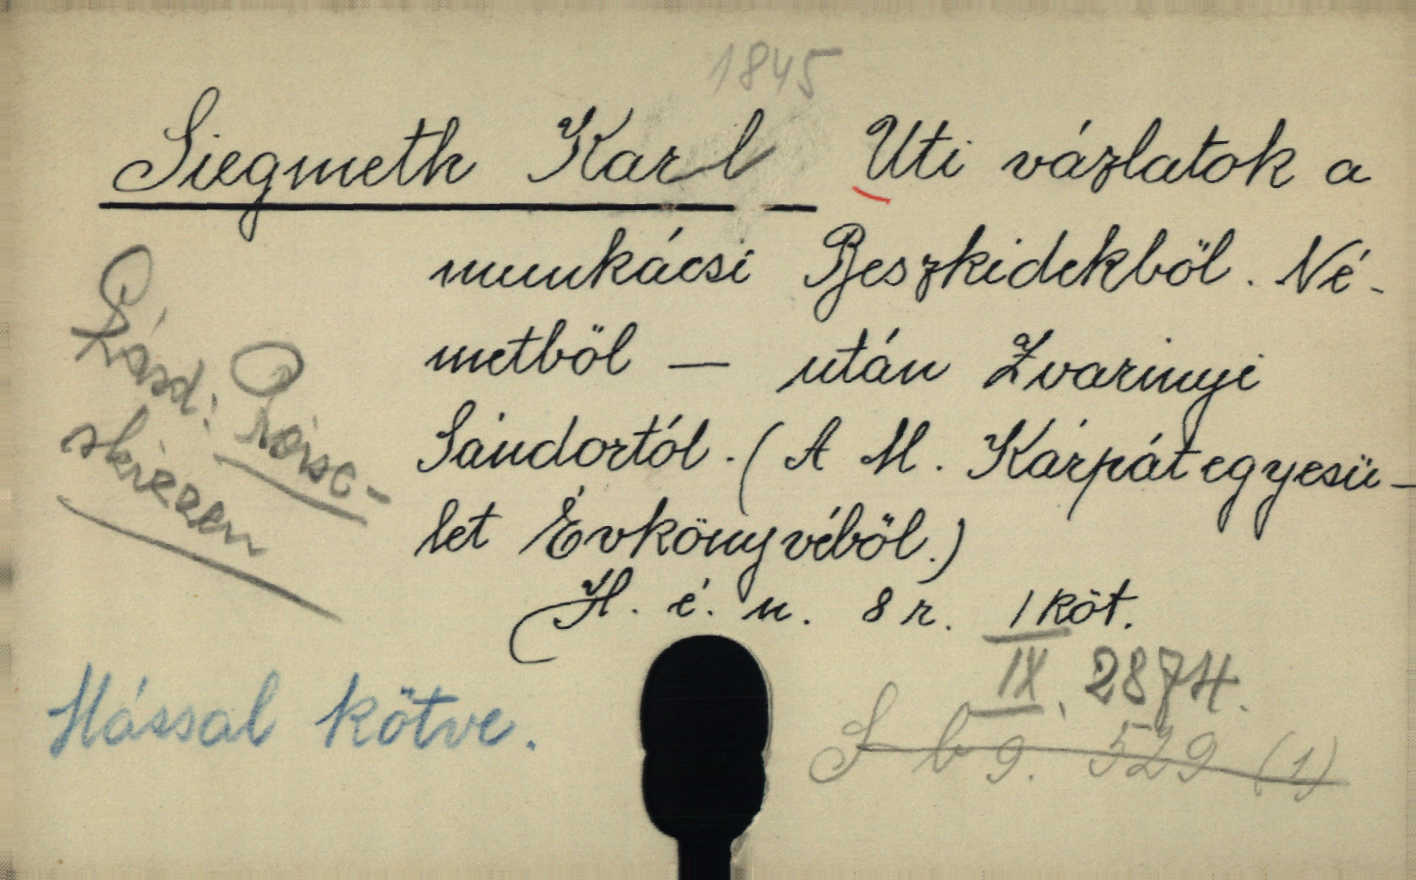 1845
Siegmeth Karl Uti vázlatok a
munkácsi Beszkidekböl. Né-
metböl — után Zvarinyi
Sándortól. (A M. Kárpátegyesü-
let Évkönyvéböl.)
H. é. n. 8 r. 1 köt.
IX. 2874.
S b 9. 529 (1)
Lásd: Reise-
skizzen
Mással kötve.